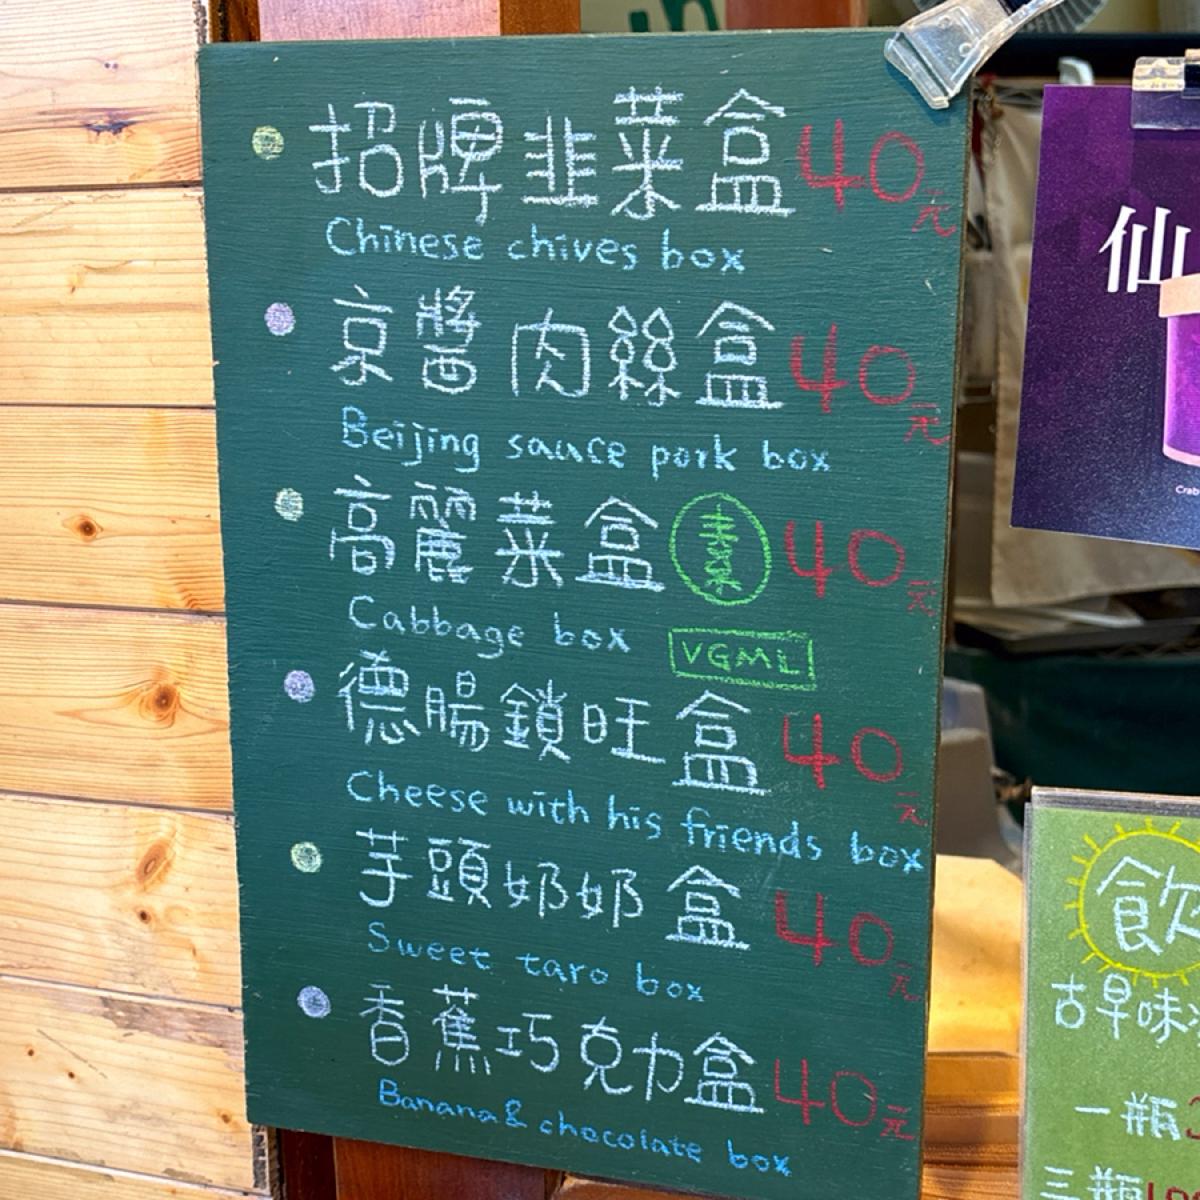 招牌韮菜盒 40元
Chinese chives box
京醬肉絲盒 40元
Beijing sauce pork box
高麗菜盒 素 40元
Cabbage box VGML
德腸鎖旺盒 40元
Cheese with his friends box
芋頭奶奶盒 40元
Sweet taro box
香蕉巧克力盒 40元
Banana & chocolate box
仙
飲
古早味
一瓶
三瓶